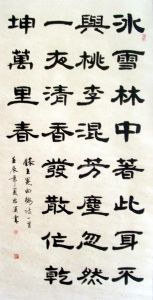 冰雪林中著此身不
與桃李混芳塵忽然
一夜清香發散作乾
坤萬里春
錄王冕白梅詩一首
壬辰年夏書